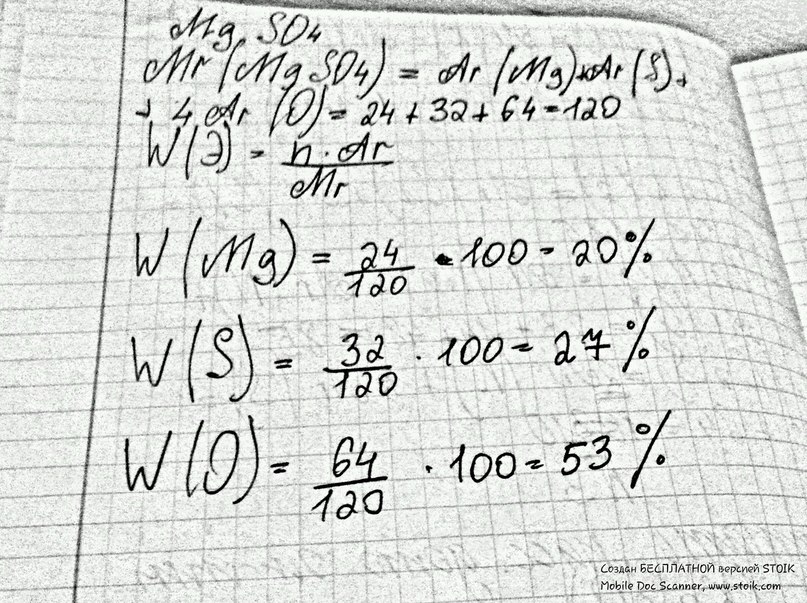 Mg SO4
Mr (Mg SO4) = Ar (Mg) + Ar (S) +
+ 4 Ar (O) = 24 + 32 + 64 = 120
W(Э) = n · Ar / Mr
W (Mg) = 24/120 · 100 = 20 %
W (S) = 32/120 · 100 = 27 %
W (O) = 64/120 · 100 = 53 %
Создан БЕСПЛАТНОЙ версией STOIK
Mobile Doc Scanner, www.stoik.com